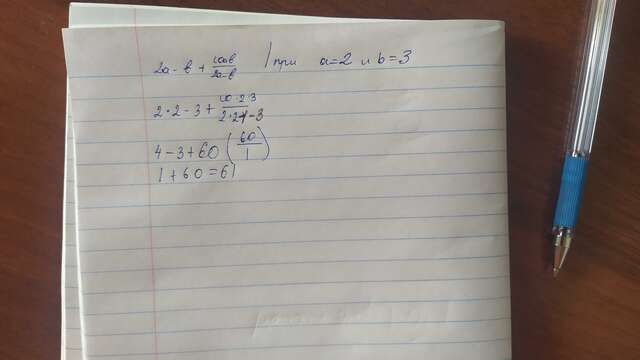 2a - b + 10ab/2a-b при a=2 и b=3
2·2-3+ 10·2·3/2·2-3
4-3+60 (60/1)
1+60=61